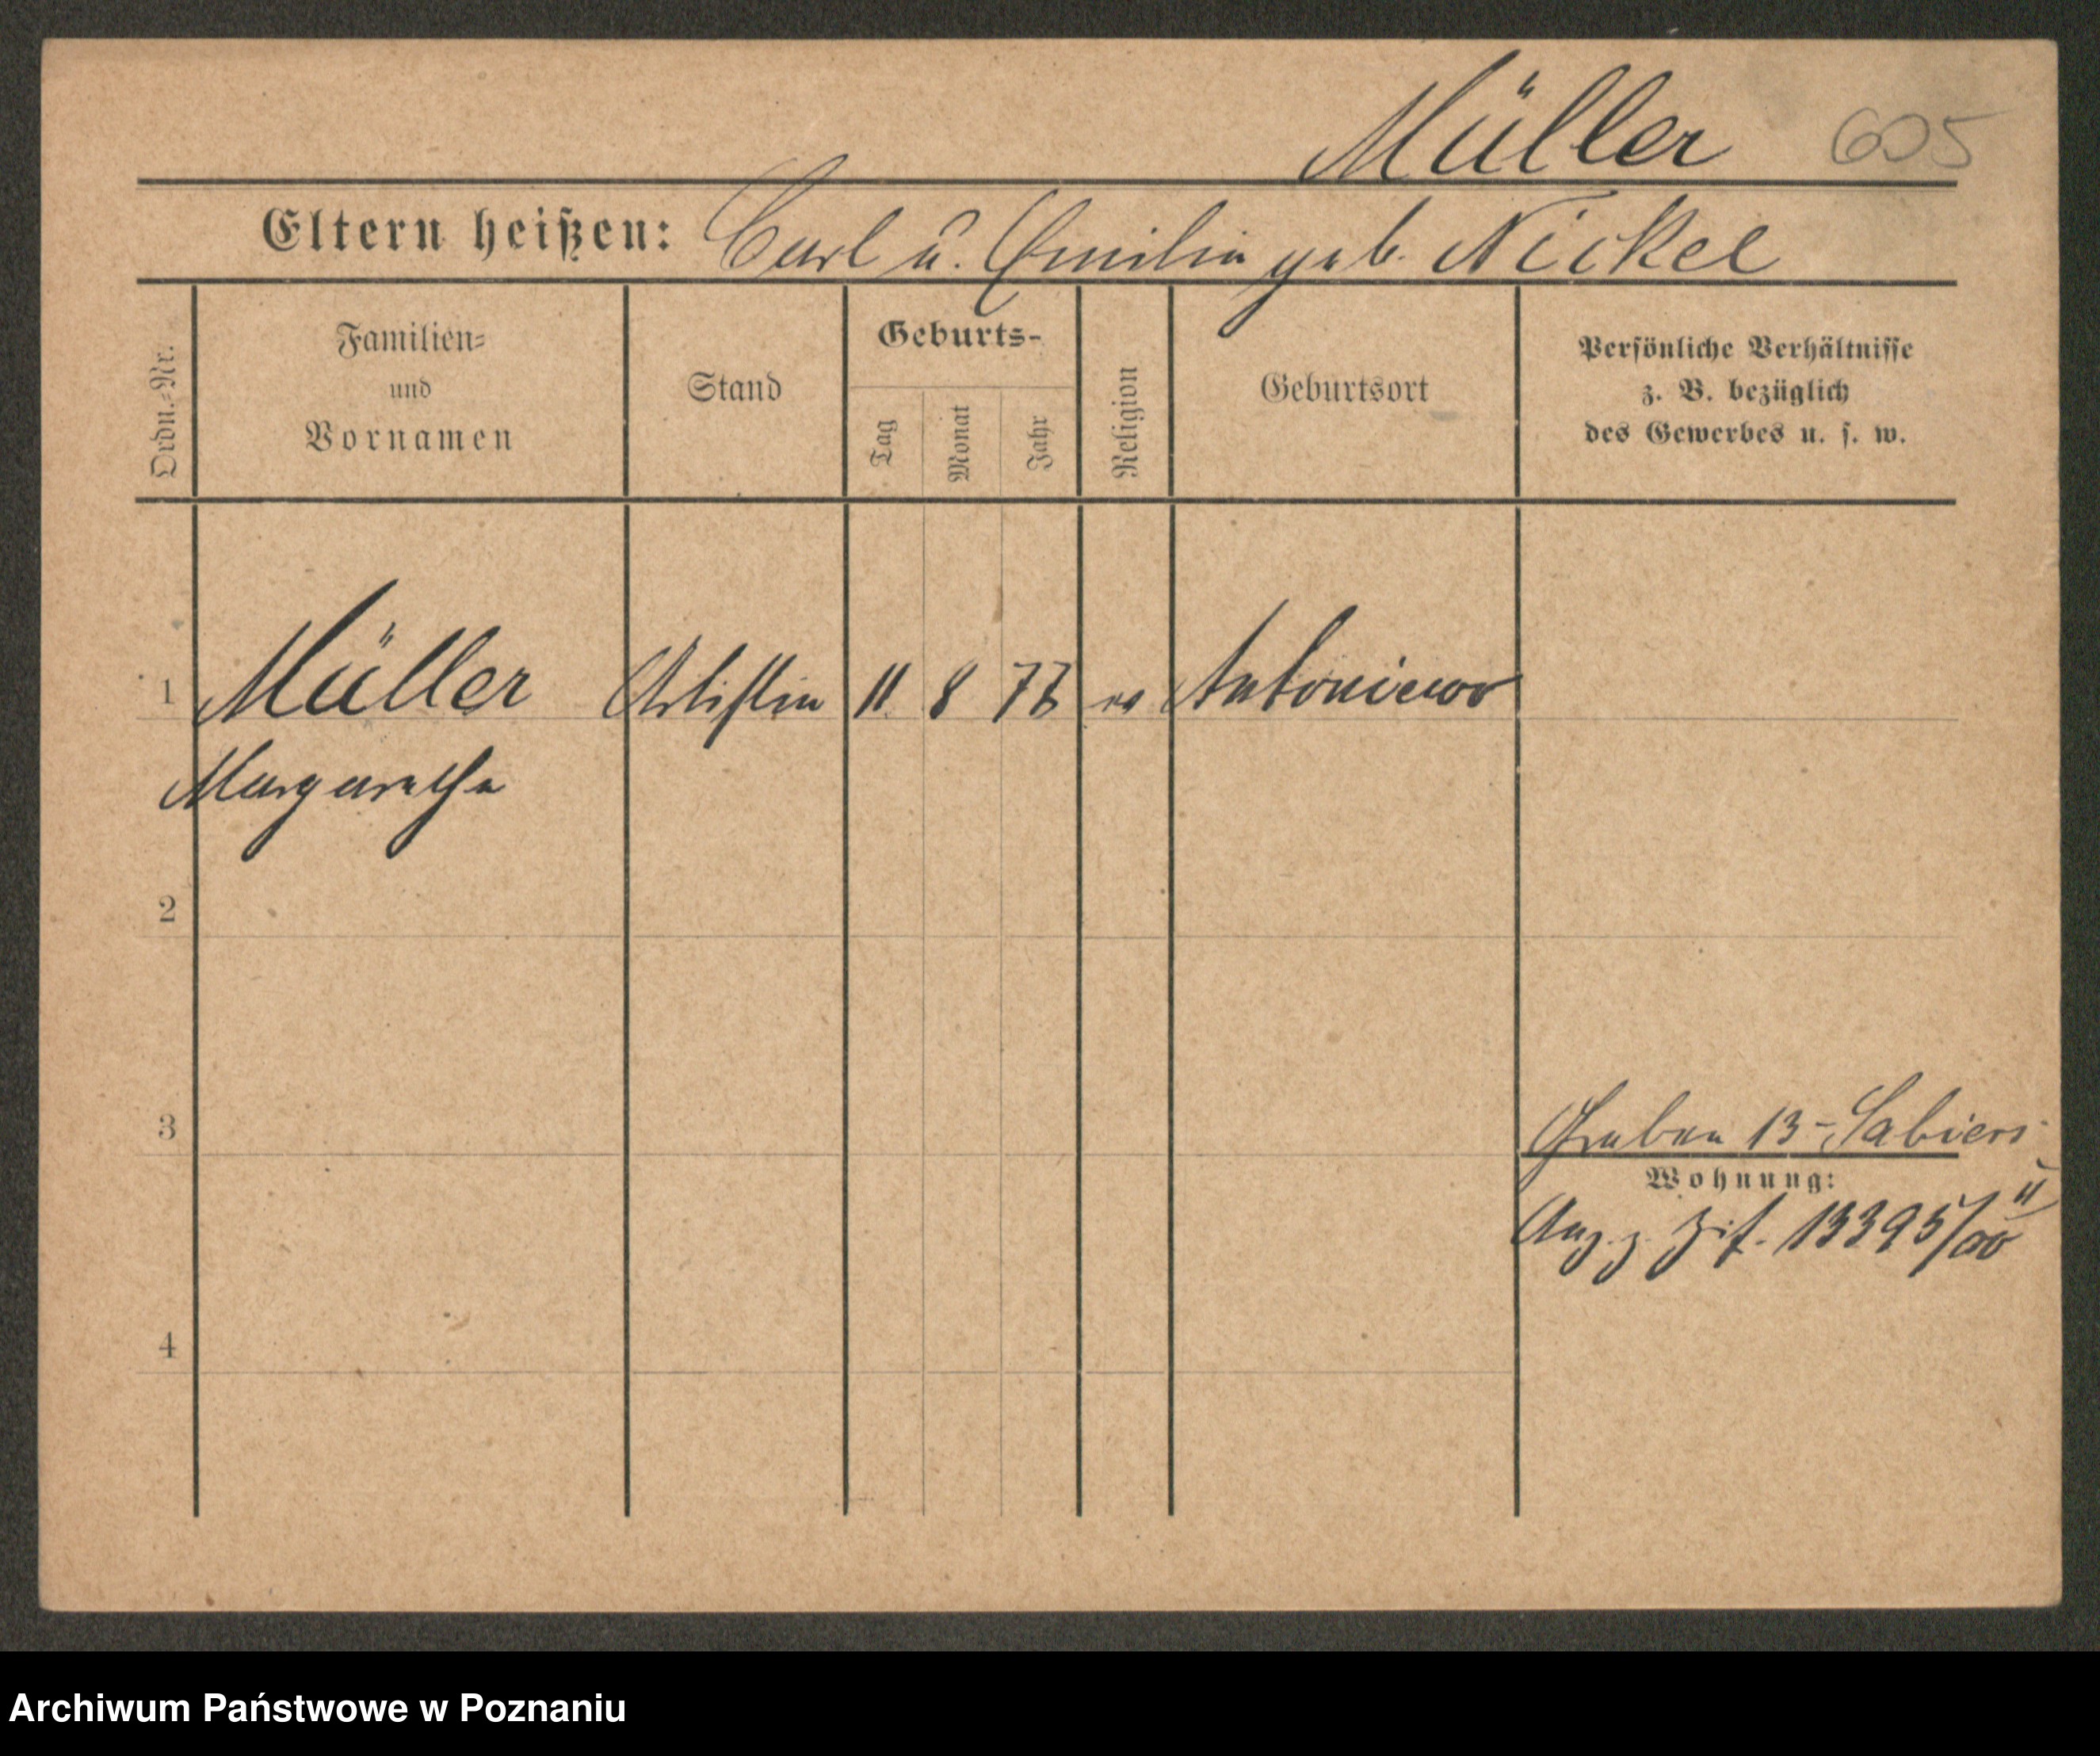 Müller 605
Eltern heißen: Carl u. Emilie geb. Nickel
Ordn.=Nr.
Familien=
und
Vornamen
Stand
Geburts-
Tag
Monat
Jahr
Religion
Geburtsort
Persönliche Verhältnisse
z. B. bezüglich
des Gewerbes u. s. w.
1 Müller Artistin 11 8 77 ev Antoniewo
Margarethe
2
3
Graben 13
Wohnung:
13395/00
4
Archiwum Państwowe w Poznaniu